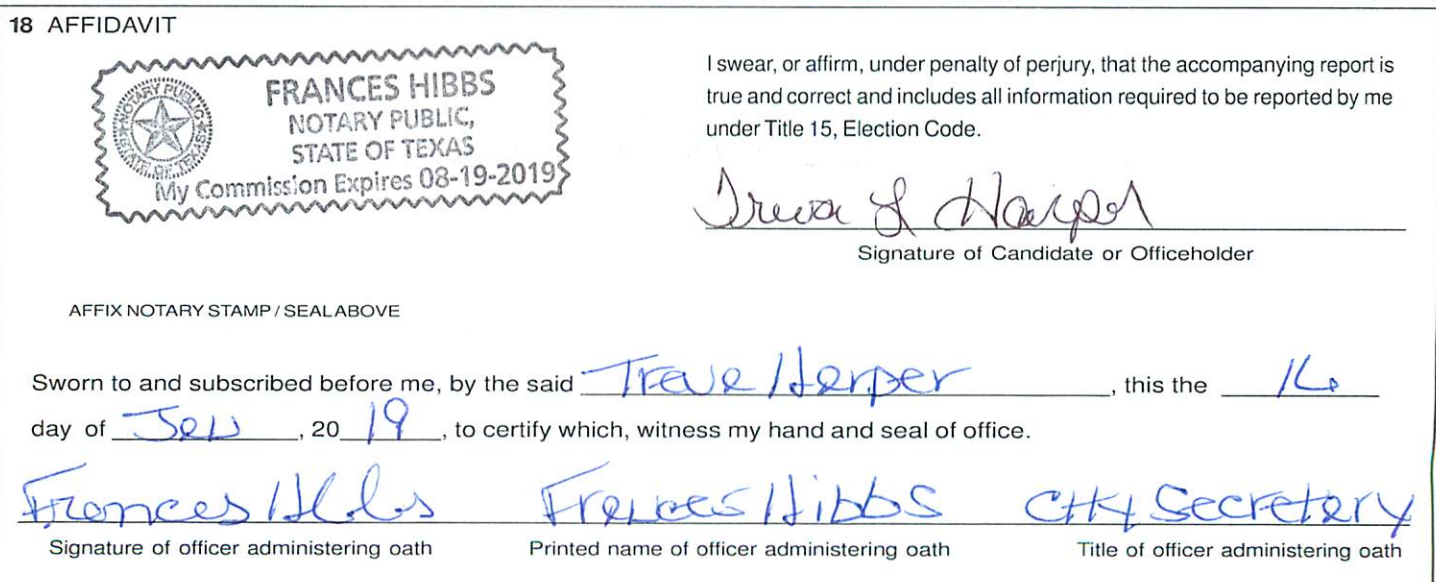 18 AFFIDAVIT
NOTARY PUBLIC
STATE OF TEXAS
FRANCES HIBBS
NOTARY PUBLIC,
STATE OF TEXAS
My Commission Expires 08-19-2019
I swear, or affirm, under penalty of perjury, that the accompanying report is
true and correct and includes all information required to be reported by me
under Title 15, Election Code.
Treva L Harper
Signature of Candidate or Officeholder
AFFIX NOTARY STAMP / SEAL ABOVE
Sworn to and subscribed before me, by the said Treva Harper, this the 16
day of Jan, 20 19, to certify which, witness my hand and seal of office.
Frances Hibbs Frances Hibbs City Secretary
Signature of officer administering oath Printed name of officer administering oath Title of officer administering oath